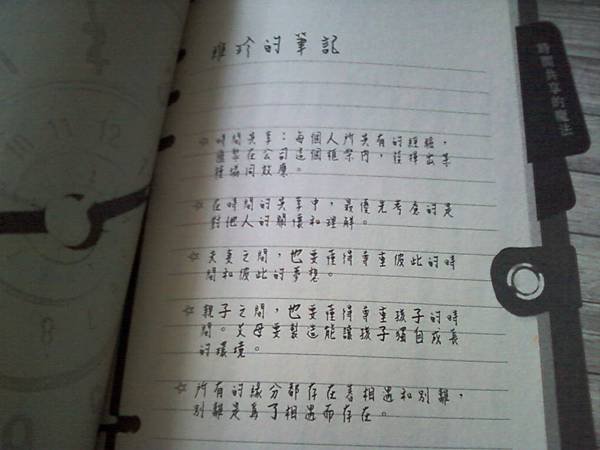 雅珍的筆記
時間共享的魔法
☆ 時間共享：每個人所共有的經驗，
匯聚在公司這個框架內，發揮出某
種協同效應。
☆ 在時間的共享中，最優先考慮的是
對他人的關懷和理解。
☆ 夫妻之間，也要懂得尊重彼此的時
間和彼此的夢想。
☆ 親子之間，也要懂得尊重孩子的時
間。父母要製造能讓孩子獨自成長
的環境。
☆ 所有的緣分都存在著相遇和別離，
別離是為了相遇而存在。
11
12